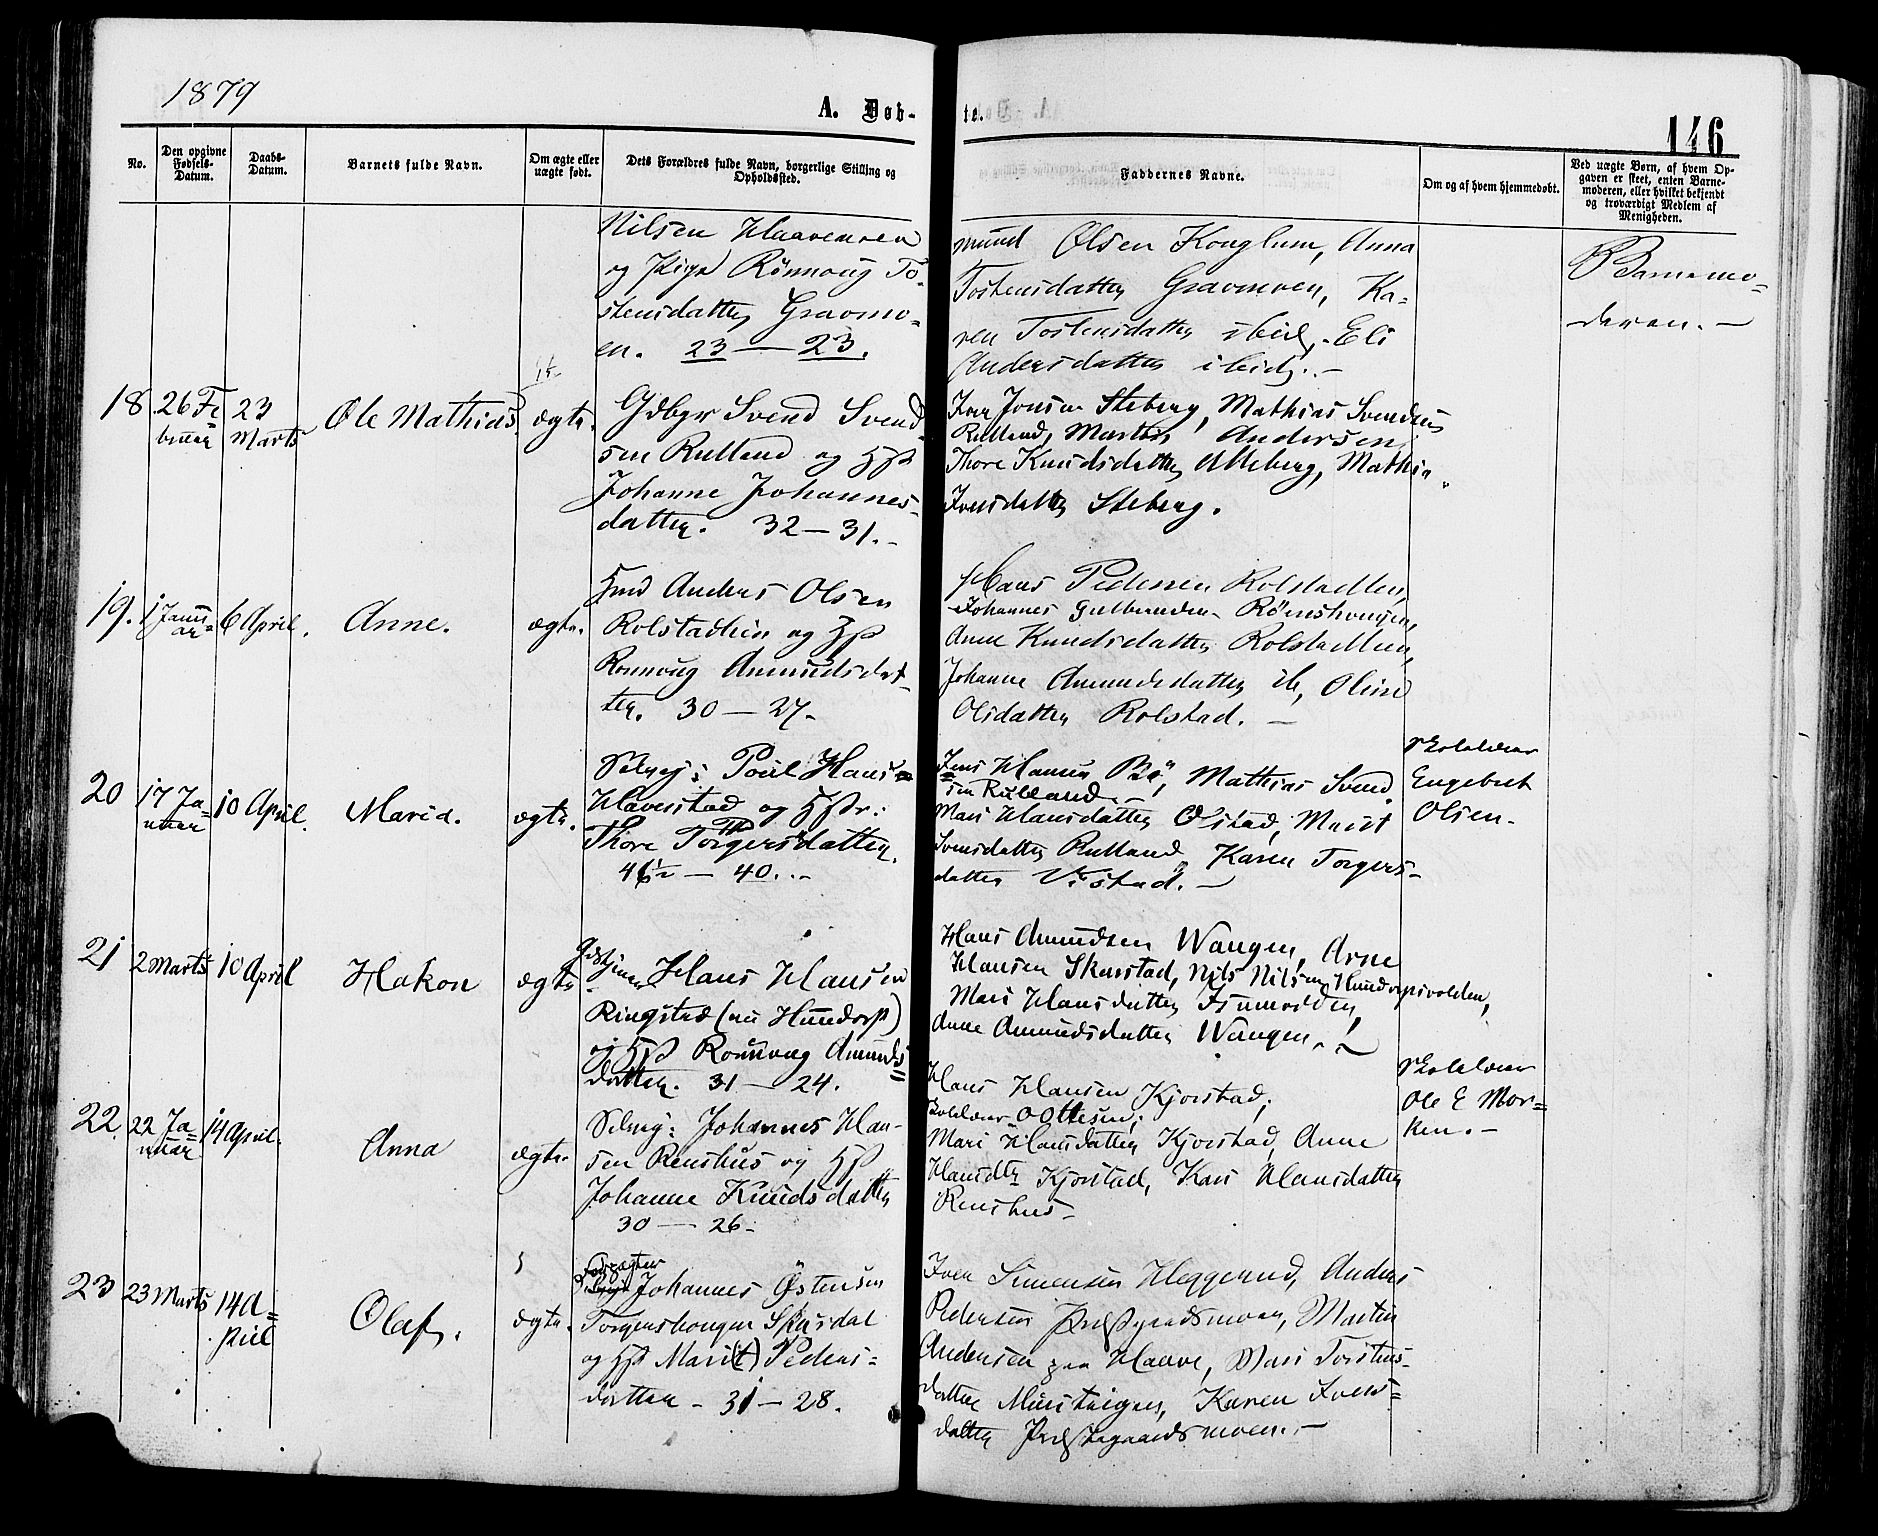 1879
A. Døb-
te.
146
No.
Den opgivne
Fødsels-
Datum.
Daabs-
Datum.
Barnets fulde Navn.
Om ægte eller
uægte født.
Dets Forældres fulde Navn, borgerlige Stilling og
Opholdssted.
Faddernes Navne.
Om og af hvem hjemmedøbt.
Ved uægte Børn, af hvem Op-
gaven er skeet, enten Barne-
moderen, eller hvilket bekjendt
og troværdigt Medlem af
Menigheden.
Nilsen Haavenven
og Pige Rönnoug To-
stensdatter Gravmo-
en. 23 — 23.
mund Olsen Konglum, Anna
Tostensdatter Gravmoen, Ka-
ren Tostensdatter ibid, Eli
Andersdatter ibid. -
Barnemo-
deren. -
18
26 Fe-
bruar
23
Marts
Ole Mathias
ægte.
Gdbgr Svend Svend-
sen Rulland og Hst
Johanne Johannes-
datter. 32 — 31. -
Iver Jonsen Steberg, Mathias Svendsen
Rulland, Martin Andersen
Thore Knudsdatter Alleberg, Mathia
Iversdatter Steberg.
19.
1 Janu-
ar
6 April.
Anne.
ægte.
Hmd Anders Olsen
Rolstadlien og Hst
Ronnoug Amundsdat-
ter. 30 — 27. -
Hans Pedersen Rolstadlien,
Johannes Gulbrandsen Römshougen,
Anne Knudsdatter Rolstadlien,
Johanne Amundsdatter ib, Oline
Olsdatter Rolstad. —
20
17 Ja-
nuar
10 April.
Maria.
ægte.
Selvej: Poul Hansen
Haverstad og Hstr:
Thore Torgersdatter.
46½ — 40. . -
Jens Hansen Bö, Mathias Svend-
sen Rulland. -
Mari Hansdatter Olstad, Marit
Svensdatter Rulland, Karen Torgers-
datter Vistad. —
Skolelærer
Engebret
Olsen.
21
2 Marts
10 April
Hakon
ægte
Hans Hansen
Ringstad (nu Hundorp)
og Hst Ronnoug Amunds-
datter. 31 — 24.
Hans Amundsen Wangen, Arne
Hansen Skurstad, Nils Nilsen Hundorpsvolden,
Mari Hansdatter
Anne Amundsdatter Wangen. -
22
22 Ja-
nuar
14 April.
Anna
ægte.
Selvej: Johannes Han-
sen Renshus og Hst
Johanne Knudsdatter
30 — 26. -
Hans Hansen Kjorstad,
Skolelærer O Ottesen,
Mari Hansdatter Kjorstad, Anne
Hansdtr Kjorstad, Kari Hansdatter
Renshus -
Skolelærer
Ole E Mor-
ken. -
23
23 Marts
14 A-
pril
Olaf.
ægte.
Forpagter
Johannes Östensen
Torgershougen Skurdal
og Hst Mari(t) Peders-
datter - 31 — 28.
Iver Simensen Heggerud, Anders
Pedersen Prestgaardsmoen, Martin
Andersen paa Haave, Mari Torstens-
datter Musteigen, Karen Ivers-
datter Prestegaardsmoen. -